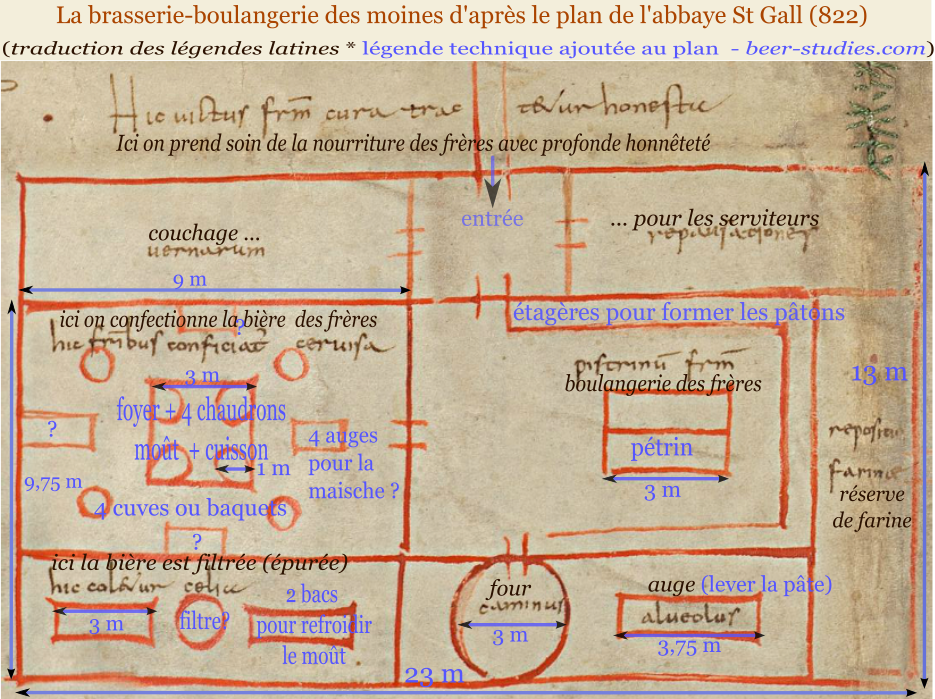 La brasserie-boulangerie des moines d'après le plan de l'abbaye St Gall (822)
(traduction des légendes latines * légende technique ajoutée au plan - beer-studies.com)
Hic victus frm cura trac tetur honeste
Ici on prend soin de la nourriture des frères avec profonde honnêteté
entrée
couchage ...
vernarum
... pour les serviteurs
repausationes
9 m
ici on confectionne la bière des frères
?
hic fribus conficiat cervisa
étagères pour former les pâtons
pistrinu frm
boulangerie des frères
13 m
3 m
foyer + 4 chaudrons
moût + cuisson
1 m
?
4 auges
pour la
maische ?
9,75 m
4 cuves ou baquets
?
pétrin
3 m
farine
réserve
de farine
ici la bière est filtrée (épurée)
hic coletur celia
3 m
filtre?
2 bacs
pour refroidir
le moût
four
caminus
3 m
auge (lever la pâte)
alveolus
3,75 m
23 m